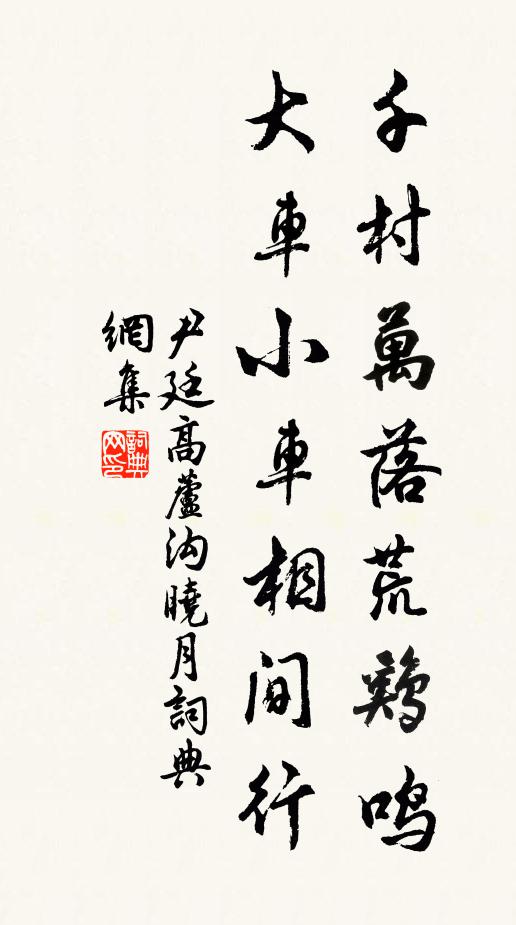 千村萬落荒鷄鳴
大車小車相間行
尹廷高蘆沟曉月詞典
網集
詞典
网印